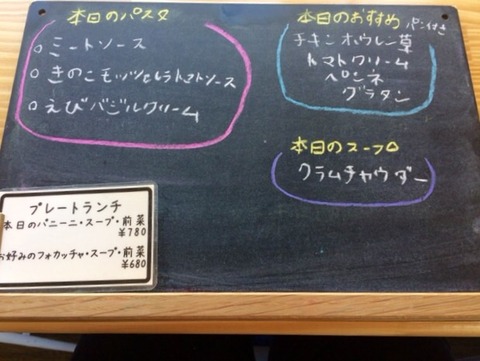 本日のパスタ
○ ミートソース
○ きのこモッツァレラトマトソース
○ えびバジルクリーム
本日のおすすめ パン付き
チキンホウレン草
トマトクリーム
ペンネ
グラタン
本日のスープ
クラムチャウダー
プレートランチ
本日のパニーニ・スープ・前菜
¥780
お好みのフォカッチャ・スープ・前菜
¥680